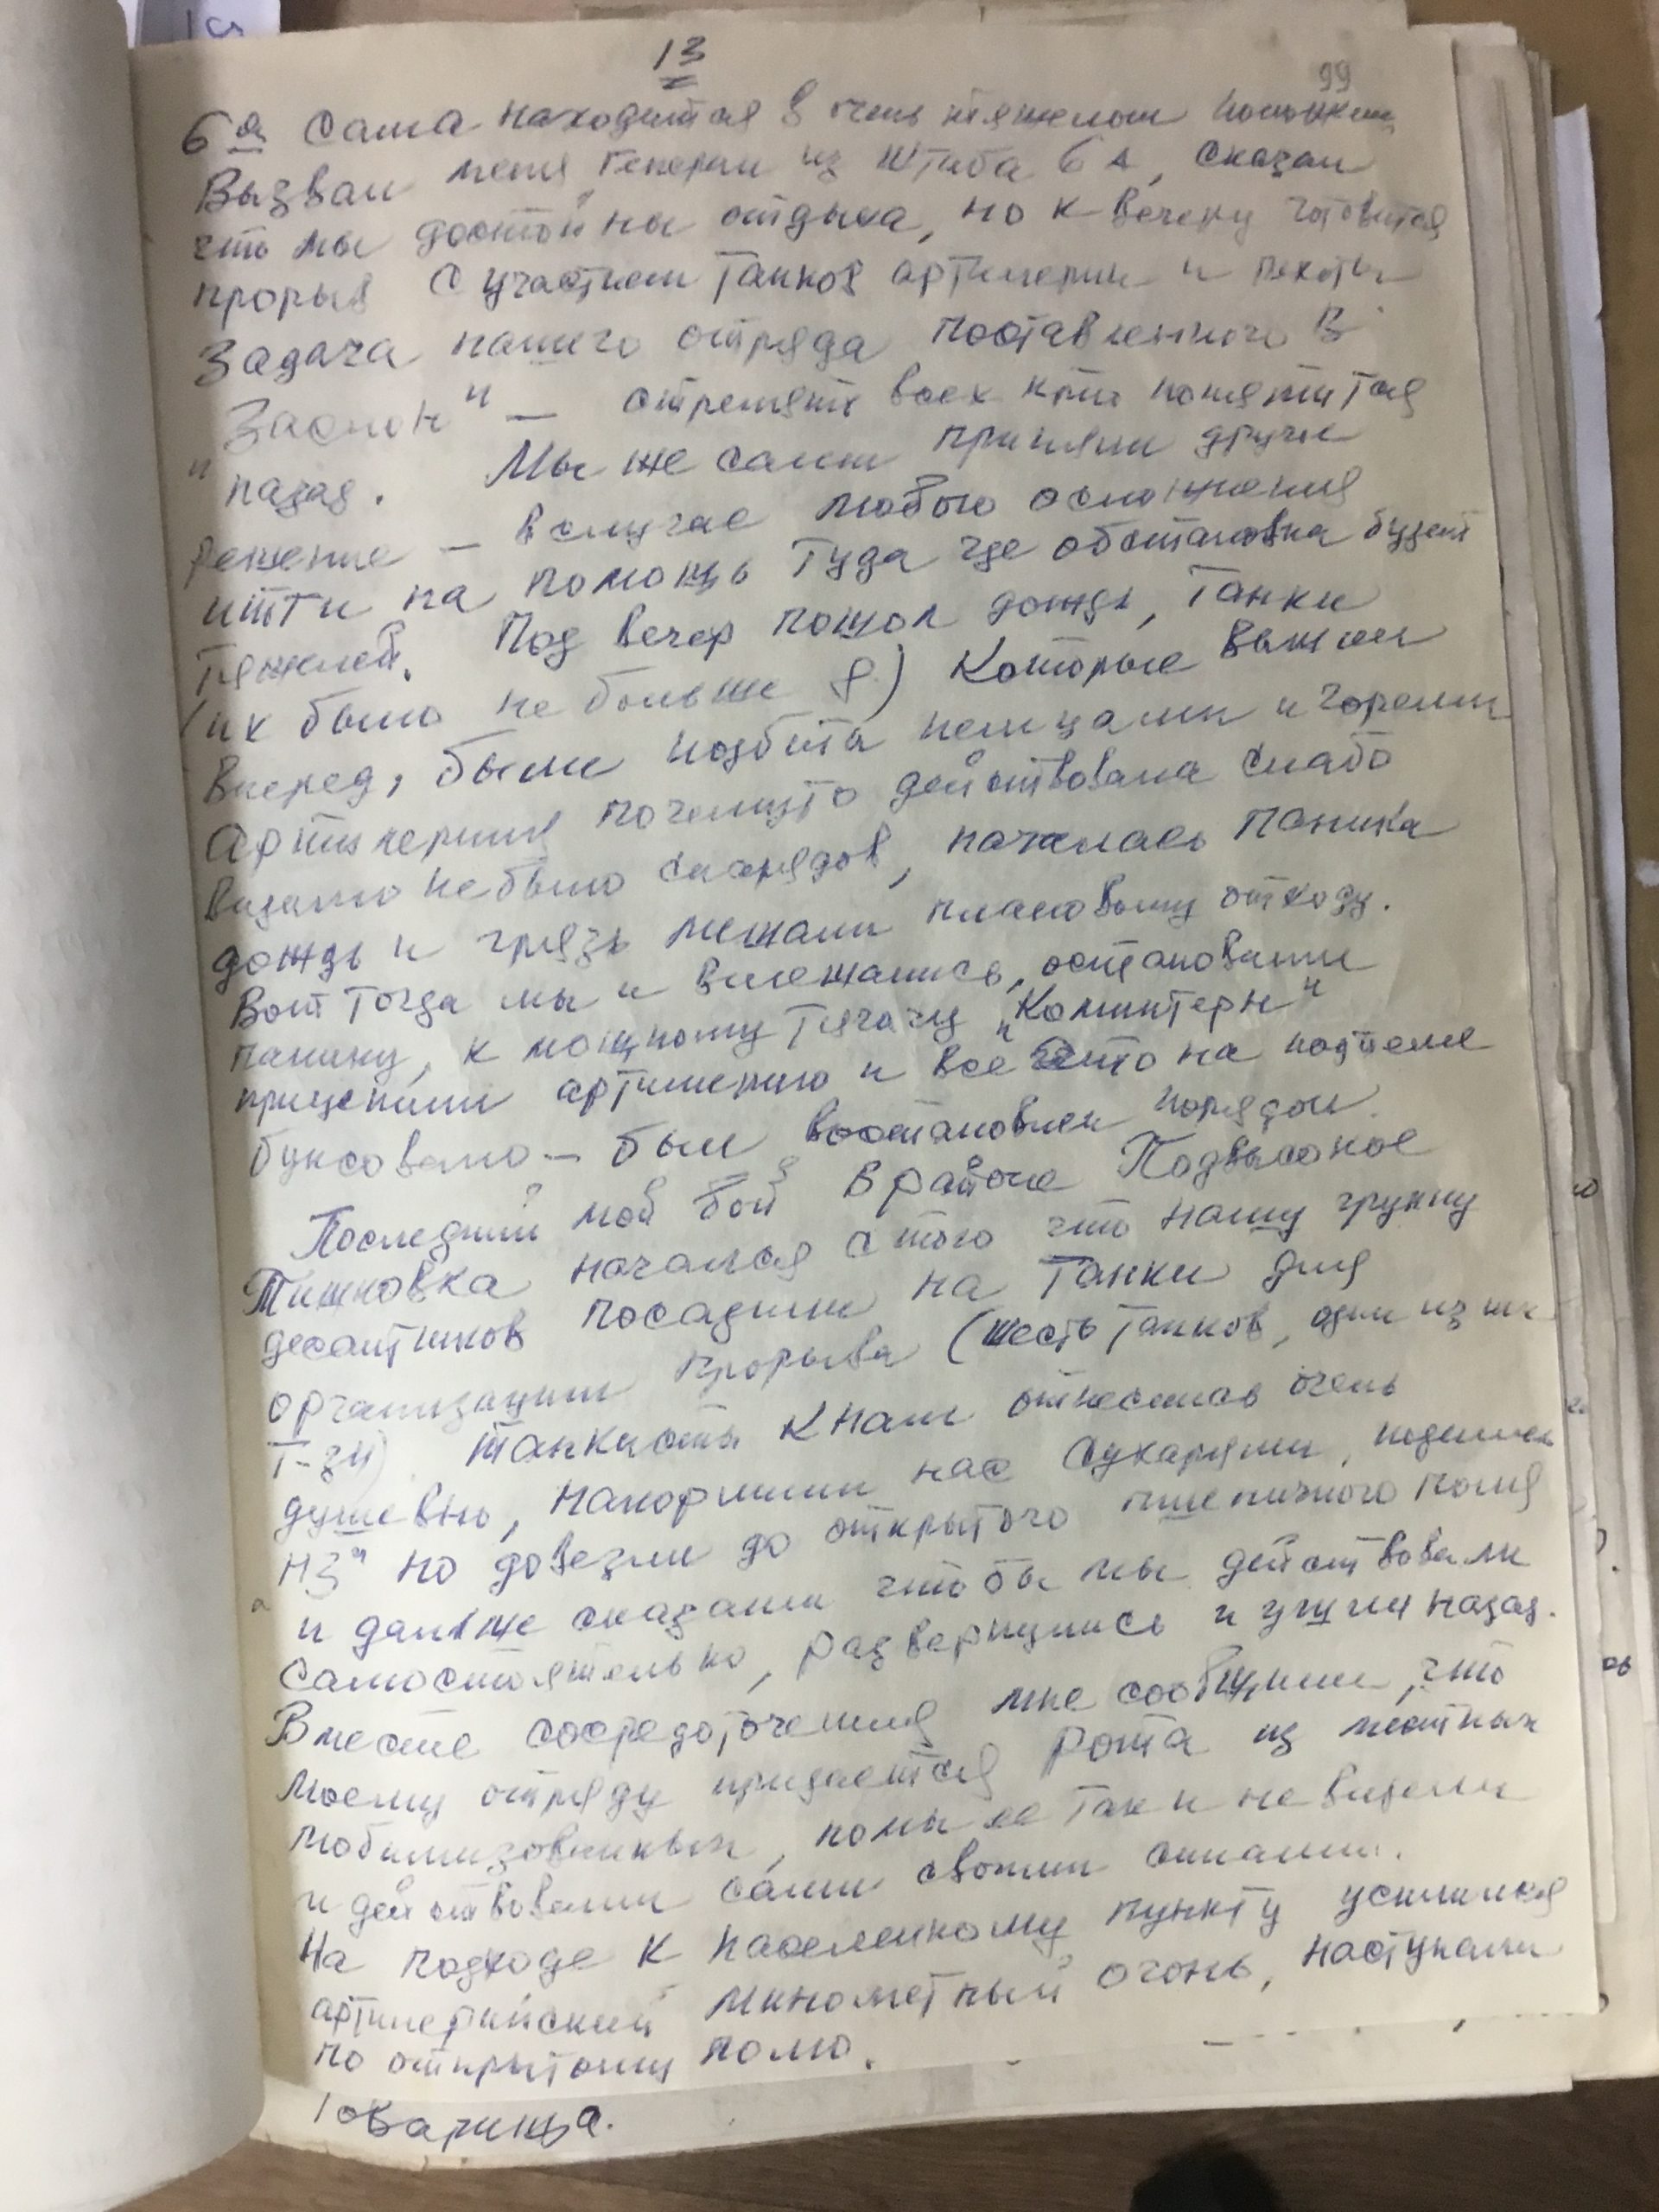 13
99
6ая сама находится в очень тяжелом положении
Вызвал меня генерал из штаба 6 А, сказал
что мы достойны отдыха, но к вечеру готовится
прорыв с участием танков артилерии и пехоты
Задача нашего отряда поставленного в
"Заслон" — стрелять всех кто попятится
назад. Мы же сами приняли другое
решение — в случае любого осложнения
итти на помощь туда где обстановка будет
тяжелей. Под вечер пошол дождь, танки
(их было не больше 8) которые вышли
вперед, были подбиты немцами и горели
Артилерия почемуто действовала слабо
видимо не было снарядов, началась паника
дождь и грязь мешали плановому отходу.
Вот тогда мы и вмешались, остановили
панику, к мощному тягачу "Коминтерн"
прицепили артилерию и все что на подъеме
буксовало — был востановлен порядок.
Последний мой бой в районе Подвысокое
Тишковка начался с того что нашу группу
десантников посадили на танки для
организации прорыва (шесть танков, один из них
Т-34). Танкисты к нам отнеслись очень
душевно, накормили нас сухарями, поделились
"НЗ" но довезли до открытого пшеничного поля
и дальше сказали чтобы мы действовали
самостоятельно, развернулись и ушли назад.
В месте сосредоточения мне сообщили, что
моему отряду придается рота из местных
мобилизованных, но мы ее так и не видели
и действовали сами своими силами.
На подходе к населенному пункту усилился
артилерийский минометный огонь, наступали
по открытому полю.
товарища.